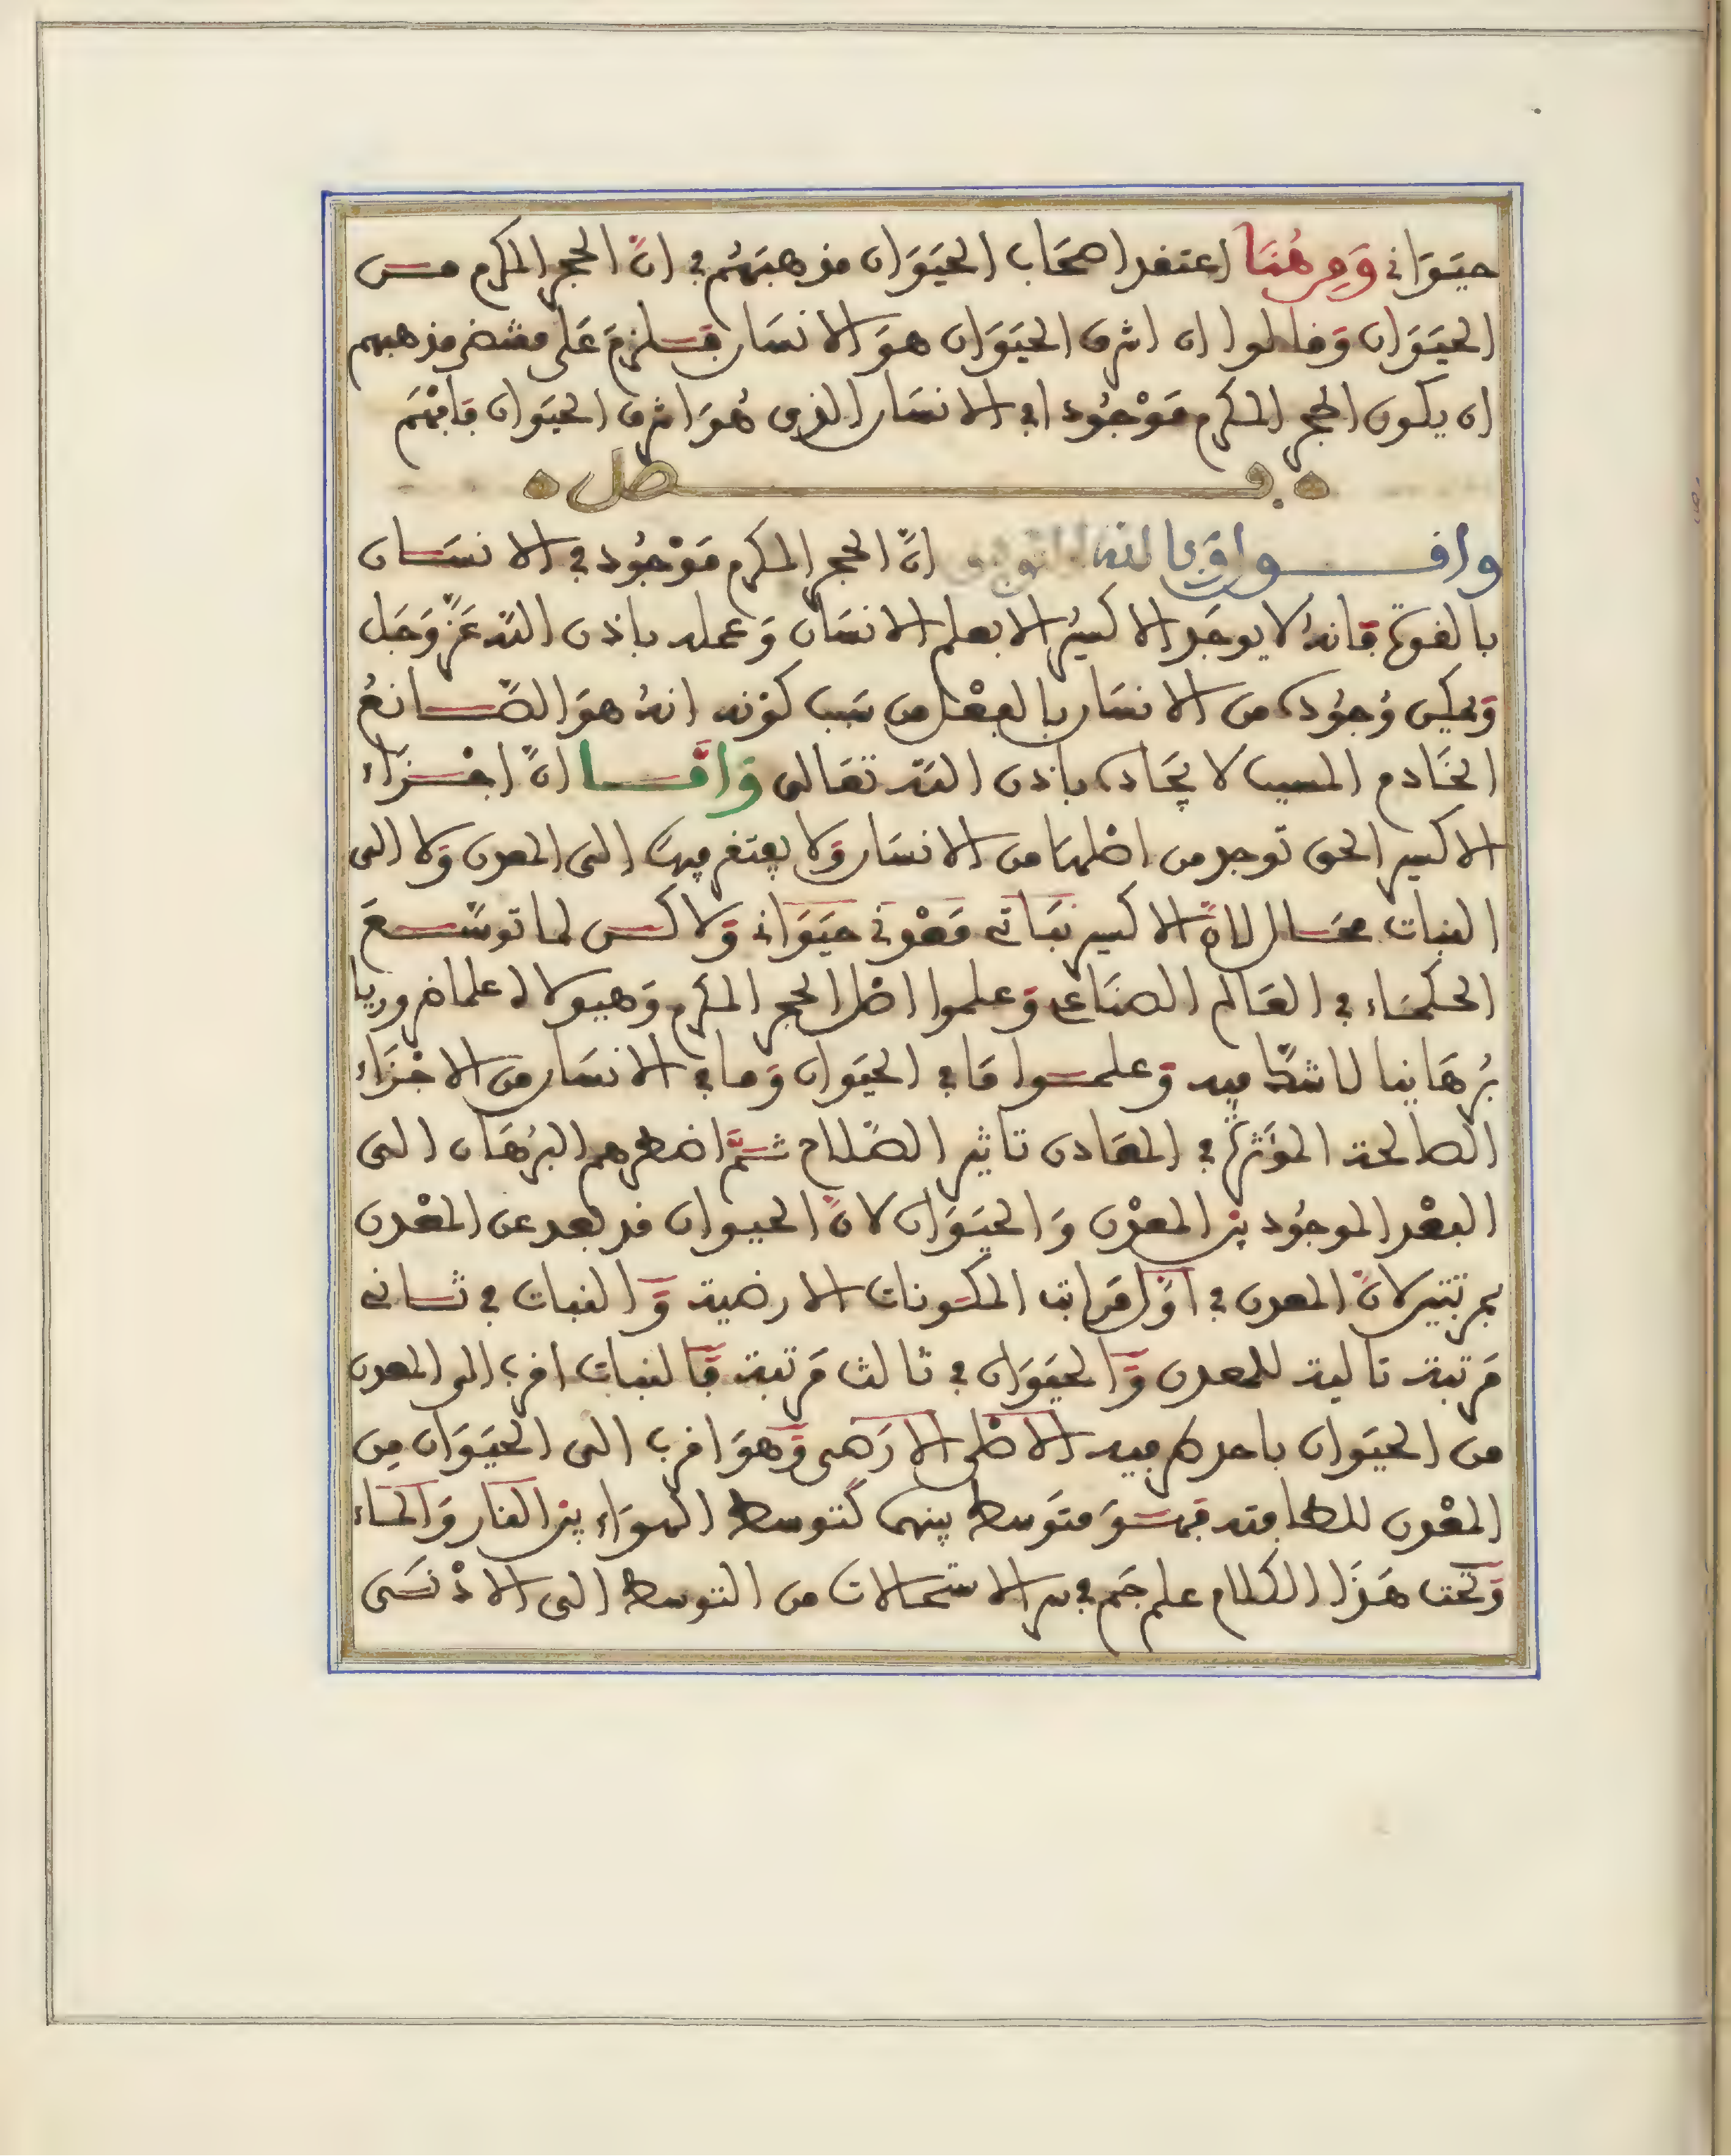 حيَوَاني وَمِن هُنَا اعتقد اصحَاب الحيَوَان مذهبَهُم في انّ الحجر المكرم مــن
الحيَوَان وَقالوا ان اشرف الحيَوَان هوَ الانسَان فيلزمَ عَلى مقتضى مذهبهم
ان يكون الحجر المكرم مَوْجُودا في الانسَان الذى هُوَ اشرف الحيَوَان فافهَم
فصل
واقــــول وَبالله التوفيق انّ الحجر المكرم مَوْجُود في الانسَــان
بالقوة فانهُ لا يوجَد الاكسيرُ الا بعلم الانسَان وَعمله باذن الله عَزّ وَجَل
وَيمكن وُجُوده من الانسَان بالفِعْل من سَبب كوْنه انهُ هوَ الصَّــانعُ
الخَادم المسبب لايجَاده باذن الله تعَالى وَامّــا انّ اجْــزاء
الاكسير الحق توجد من اصْلهَا من الانسَان وَلا يفتقر فيهَا الى المعدن وَلا الى
النبات فمحَــال لانّ الاكسير نبَاتى مَعْدني حيَوَاني وَلاكــن لما توسّــعَ
الحكمَاء في العَالم الصنَاعى وَعلموا اصْل الحجر المكرم وَهيولاه علما ضروريا
بُرهَانيا لا شكّ فيه وَعلمــوا مَا في الحيَوَان وَما في الانسَان من الاجْزَاء
الصالحة المؤَثّرة في المعَادن تاثير الصَّلاح ثــمَّ اضطرهم البُرْهَان الى
البعْد الموجُود بين المعْدن وَالحيَوَان لانّ الحيوان قد بعد عن المعْدن
بمرتبتين لانّ المعدن في اوّل مَراتب المكــونات الارضية وَالنبات في ثــانى
مَرتبة تالية للمعدن وَالحيَوَان في ثالث مَرتبة فَالنبات اقرب الى المعدن
من الحيَوَان باحد طرفيه الاصْلى الارَضى وَهوَ اقرب الى الحيَوَان مِن
المعْدن للطافته فهــوَ متوَسط بينهما كتَوسط الهوَاء بين النار وَالمــاء
وَتحت هَذَا الكلام علم جَم في سر الاستحالات من التوسط الى الادْنــى